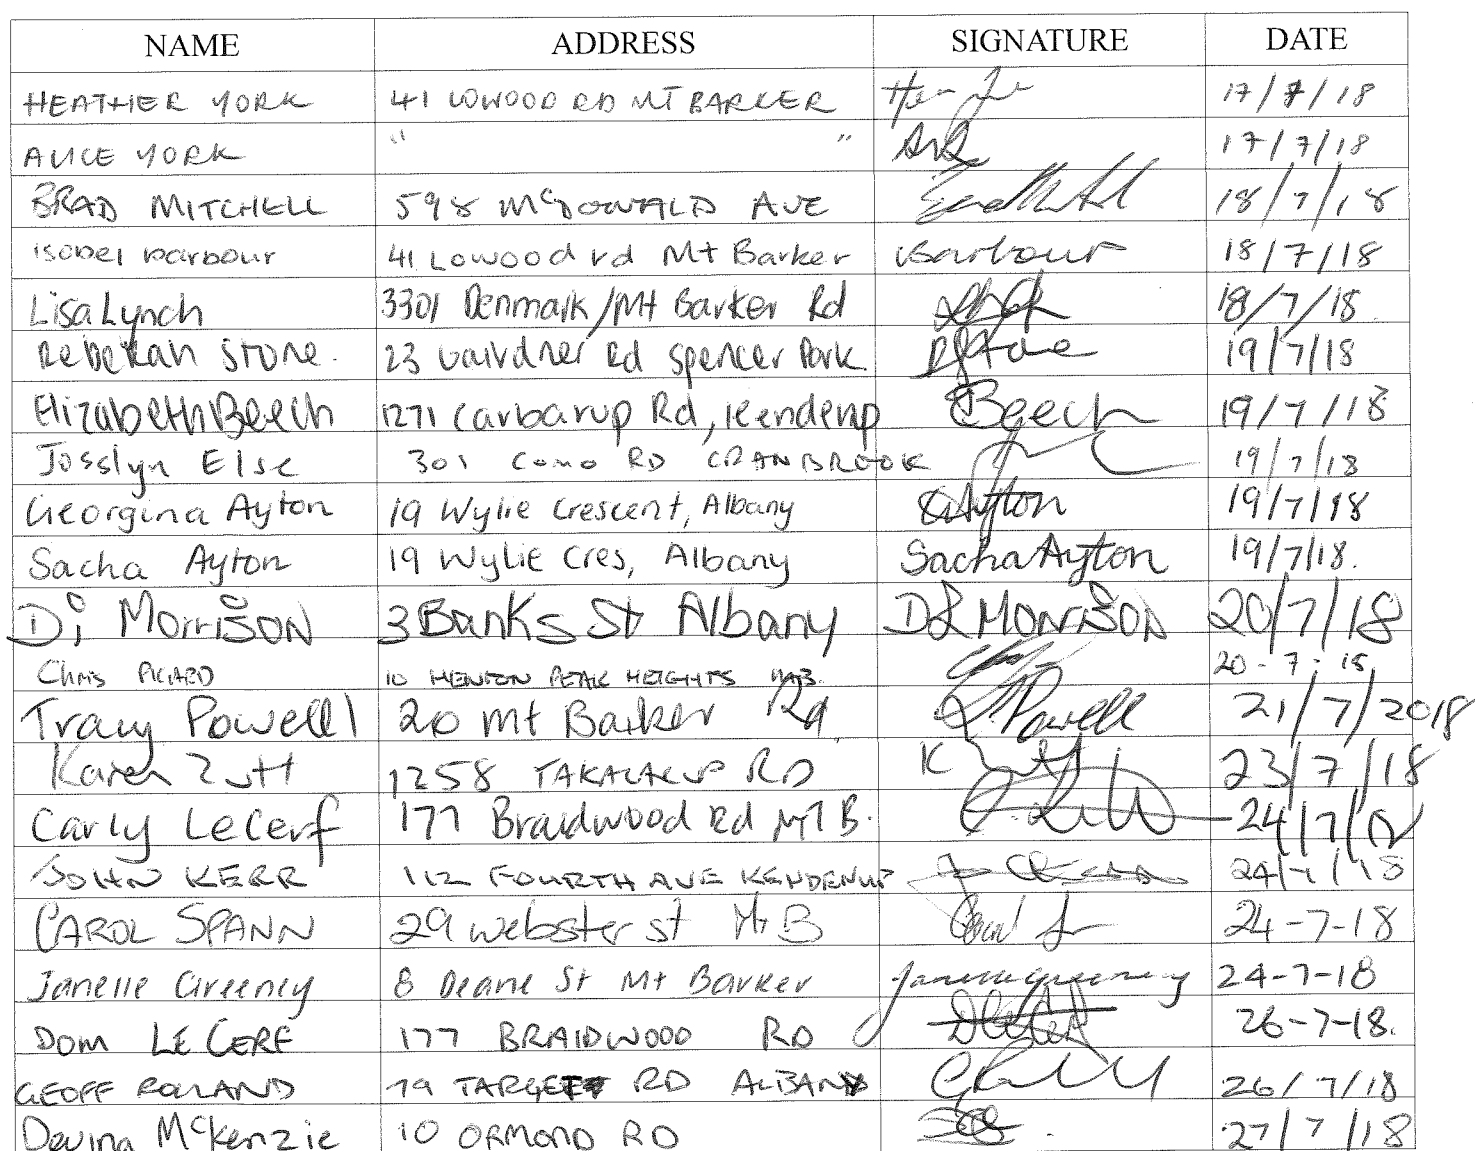 NAME ADDRESS SIGNATURE DATE
HEATHER YORK 41 LOWOOD RD MT BARKER 17/7/18
ALICE YORK " " 17/7/18
BRAD MITCHELL 598 McDONALD AVE 18/7/18
isobel barbour 41 Lowood rd Mt Barker Barbour 18/7/18
Lisa Lynch 3301 Denmark/Mt Barker Rd 18/7/18.
Rebekah Stone. 23 Gairdner Rd Spencer Park. 19/7/18
Elizabeth Beech 1271 Carbarup Rd, Kendenup Beech 19/7/18
Josslyn Else 301 Como RD CRANBROOK 19/7/18
Georgina Ayton 19 Wylie Crescent, Albany GAyton 19/7/18
Sacha Ayton 19 Wylie Cres, Albany Sacha Ayton 19/7/18.
Di MorrisON 3 Banks St Albany DL MORRISON 20/7/18
Chris PICARD 10 HENTON PEAK HEIGHTS 20-7-18
Tracy Powell 20 Mt Barker Rd Powell 21/7/2018
Karen Zutt 1258 TAKALARUP RD K Zutt 23/7/18
Carly LeCerf 177 Braidwood Rd MTB. 24/7/18
JOHN KERR 112 FOURTH AVE KENDENUP 24/7/18
CAROL SPANN 29 Webster St Mt B Carol 24-7-18
Janelle Greeney 8 Deane St Mt Barker Janelle Greeney 24-7-18
Dom LE CERF 177 BRAIDWOOD RD 26-7-18.
GEOFF ROLLAND 79 TARGET RD ALBANY 26/7/18
Davina McKenzie 10 ORMOND RD 27/7/18